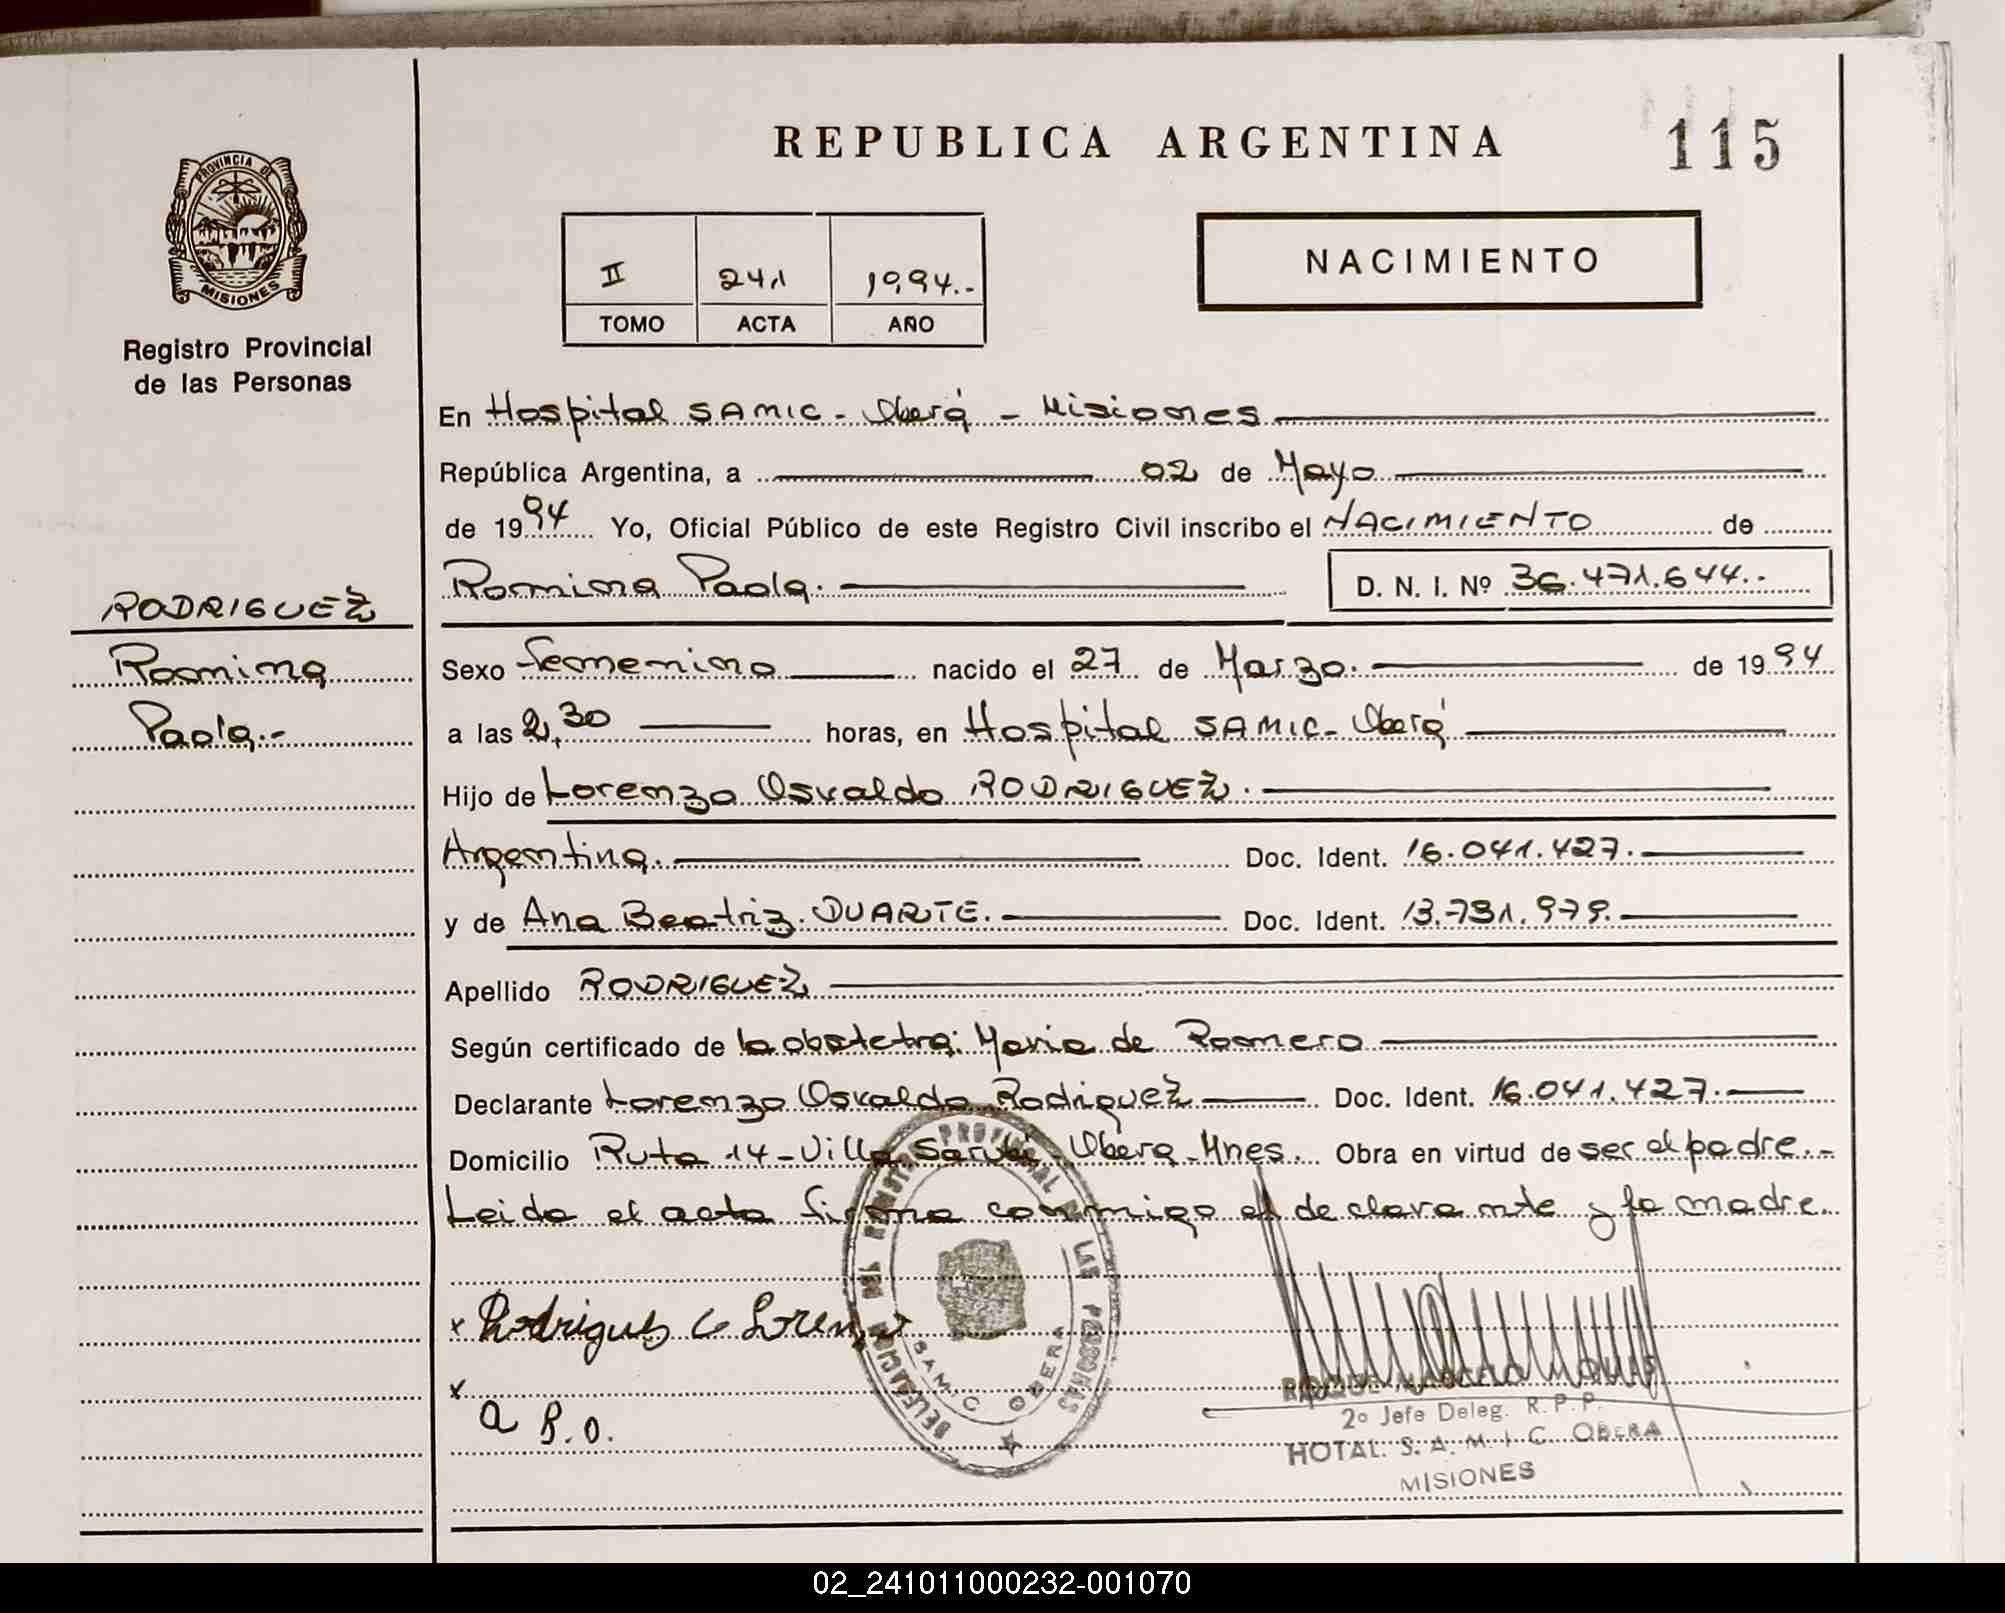 REPUBLICA ARGENTINA
115
PROVINCIA DE
MISIONES
Registro Provincial
de las Personas
II 241 1994.-
TOMO ACTA AÑO
NACIMIENTO
En Hospital SAMIC - Oberá - Misiones
República Argentina, a 02 de Mayo
de 1994 Yo, Oficial Público de este Registro Civil inscribo el NACIMIENTO de
Romina Paola. D. N. I. Nº 36.471.644.-
RODRIGUEZ
Romina
Paola.-
Sexo femenino nacido el 27 de Marzo. de 1994
a las 2,30 horas, en Hospital SAMIC - Oberá
Hijo de Lorenzo Osvaldo RODRIGUEZ.
Argentina. Doc. Ident. 16.041.427.
y de Ana Beatriz DUARTE. Doc. Ident. 13.731.979.
Apellido RODRIGUEZ
Según certificado de la obstetra: Maria de Romero
Declarante Lorenzo Osvaldo Rodriguez Doc. Ident. 16.041.427.
Domicilio Ruta 14 - Villa Sarubi - Obera - Mnes. Obra en virtud de ser el padre.-
Leida el acta firma conmigo el declarante y la madre.
x Rodrigues Lorenzo
x
a B.D.
DELEGACION DEL REGISTRO PROVINCIAL DE LAS PERSONAS
SAMIC OBERA
ROQUE MARCELO
2º Jefe Deleg. R. P. P.
HOTAL. S. A. M. I. C. OBERA
MISIONES
02_241011000232-001070